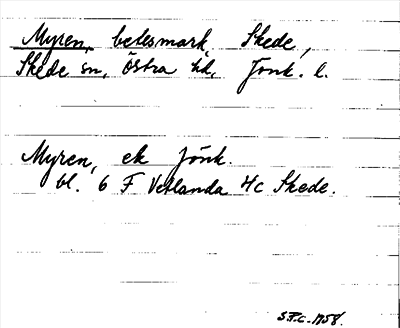 Myren, betesmark, Skede,
Skede sn, Östra hd, Jönk. l.
Myren, ek Jönk.
bl. 6 F Vetlanda 4c Skede.
S.F.C. 1958.